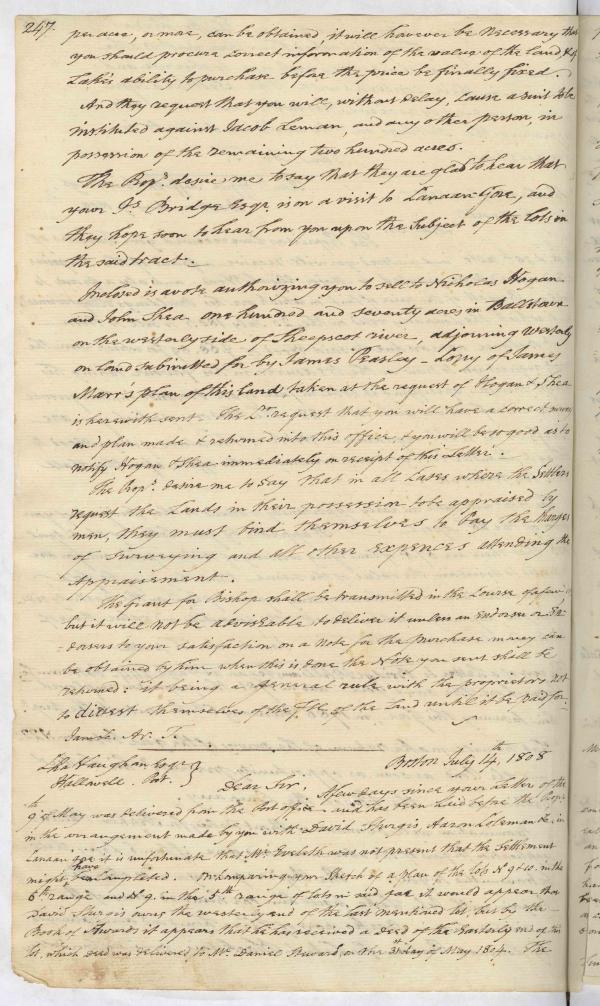 247.
per acre, or more, can be obtained, it will however be necessary that
you should procure correct information of the value of the land & of
Lake's ability to purchase before the price be finally fixed.
And they request that you will, without delay, cause a suit to be
instituted against Jacob Leman, and any other person, in
possession of the remaining two hundred acres.
The Prop.s desire me to say that they are glad to hear that
your Js Bridge Esqr is on a visit to Canaan Gore, and
they hope soon to hear from you upon the Subject of the lots in
the said tract.
Inclosed is a vote authorizing you to sell to Nicholas Hogan
and John Shea one hundred and seventy acres in Balltown
on the westerly side of Sheepscot river, adjoining Westerly
on land submitted for by James Peasley - Copy of James
Marr's plan of this land, taken at the request of Hogan & Shea
is herewith sent. The request that you will have a correct
and plan made & returned into this office, & you will be so good as to
notify Hogan & Shea immediately on receipt of this Letter.
The Prop.s desire me to say that in all Cases where the Settlers
request the Lands in their possession to be appraised by
men, they must bind themselves to pay the Charges
of Surveying and all other expences attending the
Appraisement.
The Grant for Bishop shall be transmitted in the Course of a few
but it will not be adviseable to deliver it unless an Endorser or En-
dorsers to your satisfaction on a Note for the purchase money can
be obtained by him when this is done the Note you sent shall be
returned: it being a General rule with the proprietors not
to divest themselves of the of the Land until it be paid for.
I am Sr. Ar. T.
Chs Vaughan Esqr
Hallowell. Pot. }
Boston July 14th 1808
Dear Sir, A few days since your Letter of the
9th of May was delivered from the Post office and has been laid before the Props
in the arrangement made by you with David Sturgis, Aaron &c, in
Canaan Gore it is unfortunate that Mr. Eveleth was not present that the Settlement
might have been Compleated. On Comparing your Sketch of a plan of the lots No 9 & 10. in the
6th range and No 9. in the 5th range of lots in said gore it would appear that
David Sturgis owns the westerly end of the last mentioned lot, but by the
Book of Awards it appears that he has received a deed of the Easterly end of this
lot, which deed was delivered to Mr. Daniel Steward on the 31st day of May 1804. The